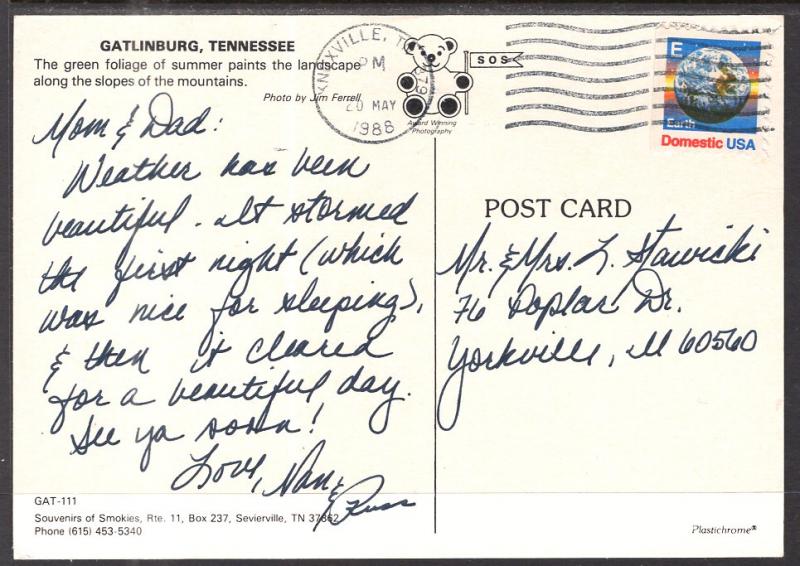 GATLINBURG, TENNESSEE
The green foliage of summer paints the landscape
along the slopes of the mountains.
Photo by Jim Ferrell
KNOXVILLE, T
PM
20 MAY
1988
SOS
Award Winning
Photography
E
Earth
Domestic USA
Mom & Dad:
Weather has been
beautiful. It stormed
the first night (which
was nice for sleeping),
& then it cleared
for a beautiful day.
See ya soon!
Love, Nan &
Russ
POST CARD
Mr. & Mrs. L. Stawicki
76 Poplar Dr.
Yorkville, Ill 60560
GAT-111
Souvenirs of Smokies, Rte. 11, Box 237, Sevierville, TN 37862
Phone (615) 453-5340
Plastichrome®